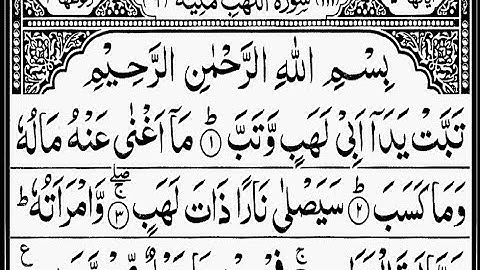 سُوْرَةُ اللَّهَبِ مَكِّيَّةٌ
بِسْمِ اللهِ الرَّحْمٰنِ الرَّحِيْمِ
تَبَّتْ يَدَاۤ اَبِيْ لَهَبٍ وَّتَبَّ ؕ﴿۱﴾ مَاۤ اَغْنٰى عَنْهُ مَالُهٗ
وَمَا كَسَبَ ؕ﴿۲﴾ سَيَصْلٰى نَارًا ذَاتَ لَهَبٍ ۚۖ﴿۳﴾ وَّامْرَاَتُهٗ ؕ